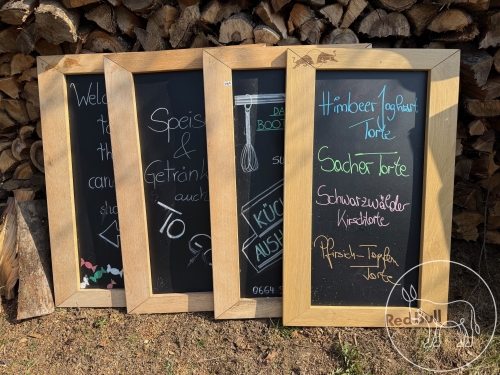 Welc
to
th
can
sho
Speis
&
Getränk
auch
TO
DA
BOOT
SU
KÜC
AUSH
0664
Himbeer Joghurt
Torte
Sacher Torte
Schwarzwälder
Kirschtorte
Pfirsich-Topfen
Torte
Red Bull